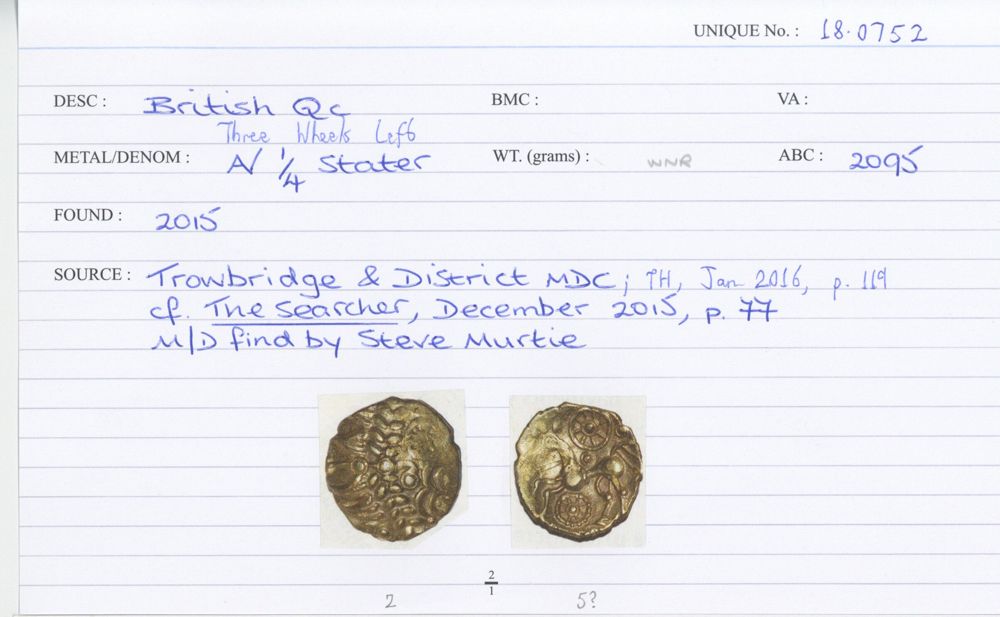 UNIQUE No. : 18.0752
DESC : British Qc BMC : VA :
Three Wheels Left
METAL/DENOM : A/ 1/4 Stater WT. (grams) : WNR ABC : 2095
FOUND : 2015
SOURCE : Trowbridge & District MDC; TH, Jan 2016, p. 119
cf. The Searcher, December 2015, p. 77
M/D find by Steve Murtie
2/1
2 5?